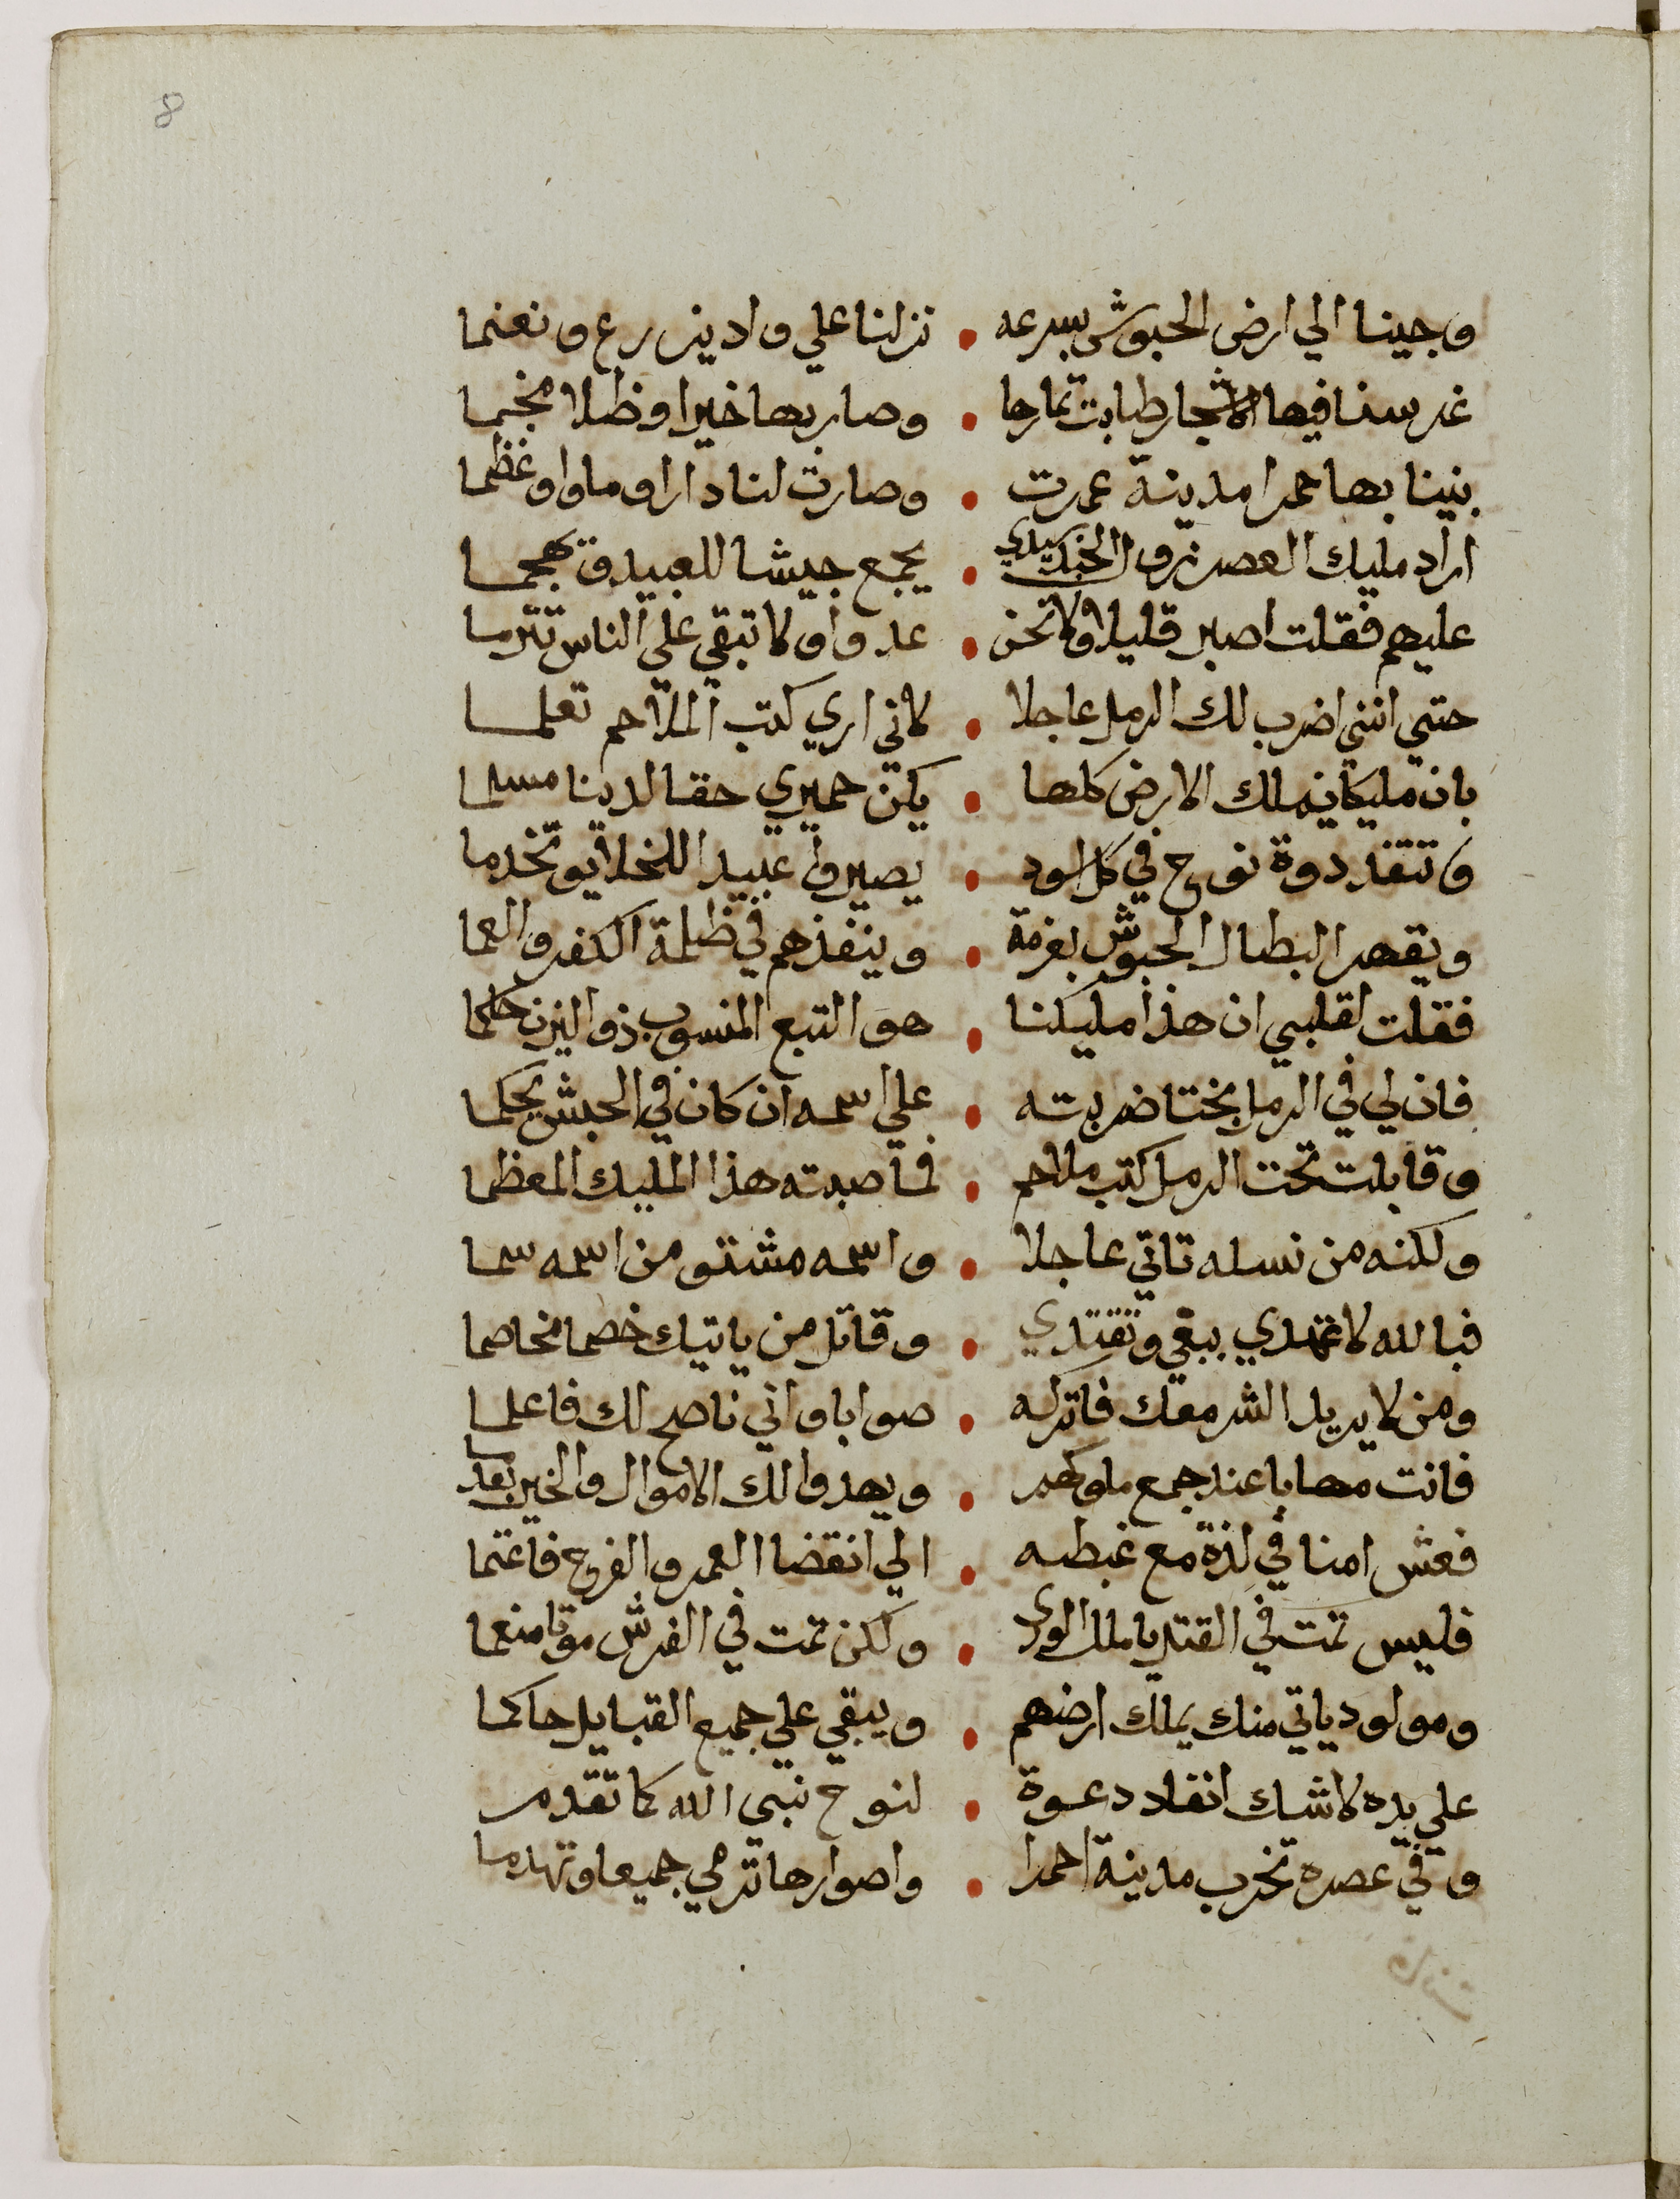 8
وجينا الي ارض الحبوش بسرعه . نزلنا علي واد يزرع ونغنما
غرسنا فيها الاشجار طابت ثمارها . وصار بها خيرا وظلا مخيما
بنينا بها حمرا مدينة عمرت . وصارت لنا دارا وماوا وعظما
اراد مليك العصر يجمع جيشا للعبيد وتهجما
عليهم فقلت اصبر قليلا ولا تخن . عدوا ولا تبقي علي الناس تترما
حتي انني اضرب لك الرمل عاجلا . لاني اري كتب الملاحم تعلما
بان مليكا يملك الارض كلها . يكن حميري حقا لدينا مسلما
وتنفد دوة نوح في كل اسود . يصيروا عبيدا للخلايق تخدما
ويقهر البطال الحبوش بعزمة . وينفذهم في ظلمة الكفر والعما
فقلت لقلبي ان هذا مليكنا . هو التبع المنسوب ذو اليزن حاكما
فان لي في الرمل بختا ضربته . علي اسمه ان كان في الحبش يحكما
وقابلت تحت الرمل كتب ملاحم . فما صبته هذا المليك المعظما
ولكنه من نسله تاتي عاجلا . واسمه مشتق من اسمه سما
فبالله لا تهتدي ببغي وتقتدي . وقاتل من ياتيك خصما مخاصما
ومن لا يريد الشر معك فاتركه . صوابا واني ناصح لك فاعلما
فانت مهابا عند جمع ملوكهم . ويهدوا لك الاموال والخير بعدما
فعش امنا في لذة مع غبطه . الي انقضا العمر والفرح فاغتما
فليس تمت في القتل يا ملك الورى . ولكن تمت في الفرش موتا منعما
ومولود ياتي منك يملك ارضهم . ويبقي علي جميع القبايل حاكما
علي يده لا شك انفاد دعوة . لنوح نبي الله كما تقدم
وفي عصره تخرب مدينة احمرا . واصوارها ترمي جميعا وتهدما